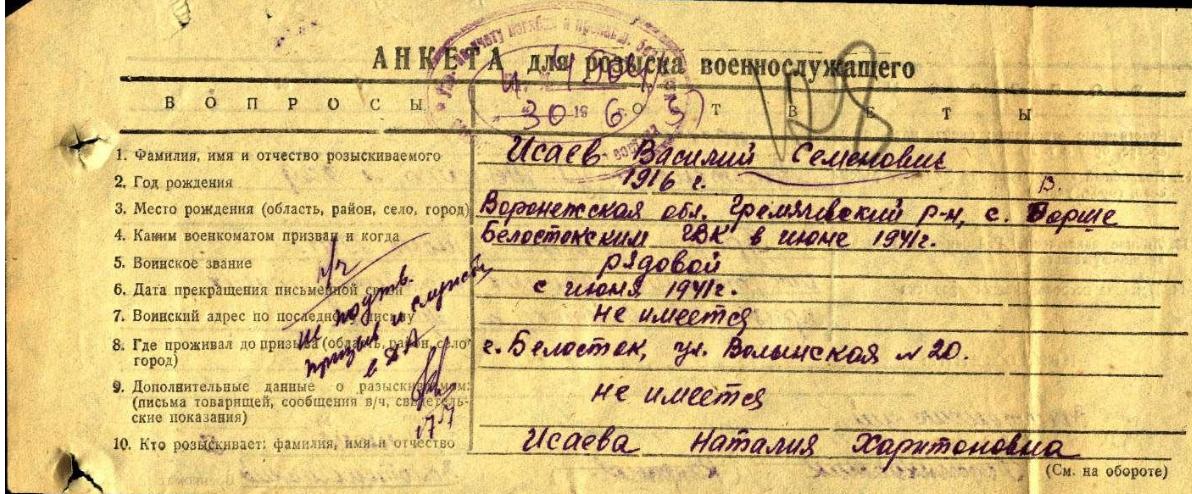 АНКЕТА для розыска военнослужащего
ВОПРОСЫ
ОТВЕТЫ
30 6
1. Фамилия, имя и отчество розыскиваемого Исаев Василий Семенович
2. Год рождения 1916 г.
3. Место рождения (область, район, село, город) Воронежская обл. Гремячевский р-н, с.
4. Каким военкоматом призван и когда Белостокским ГВК в июне 1941г.
5. Воинское звание рядовой
6. Дата прекращения письменной связи с июня 1941г.
7. Воинский адрес по последнему письму не имеется
8. Где проживал до призыва (область, район, село, город) г. Белосток, ул. Волынская № 20.
9. Дополнительные данные о разыскиваемом: не имеется
(письма товарищей, сообщения в/ч, свидетель-
ские показания)
10. Кто розыскивает: фамилия, имя и отчество Исаева Наталия Харитоновна
(См. на обороте)
не подтв.
призыв и служба
в СА